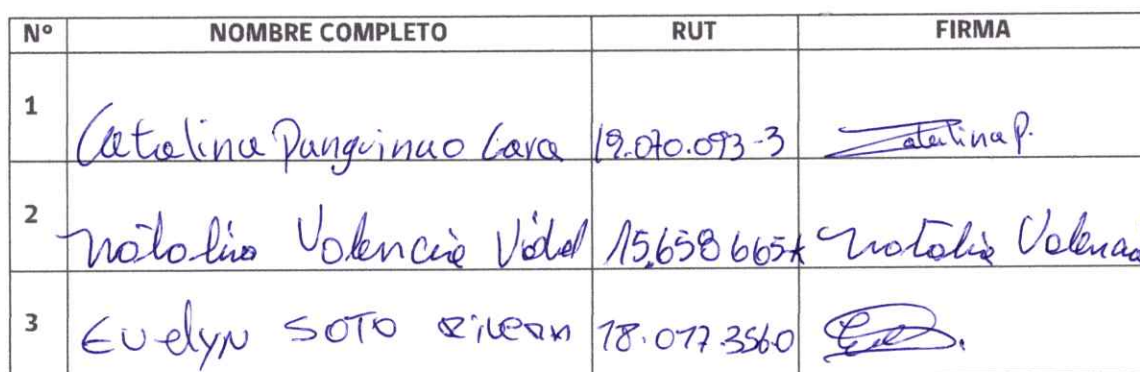 Nº NOMBRE COMPLETO RUT FIRMA
1 Catalina Panguinao Lara 19.070.093-3 Catalina P.
2 Natalia Valencia Vidal 15.658665k Natalia Valencia
3 Evelyn SOTO 18.077.356-0